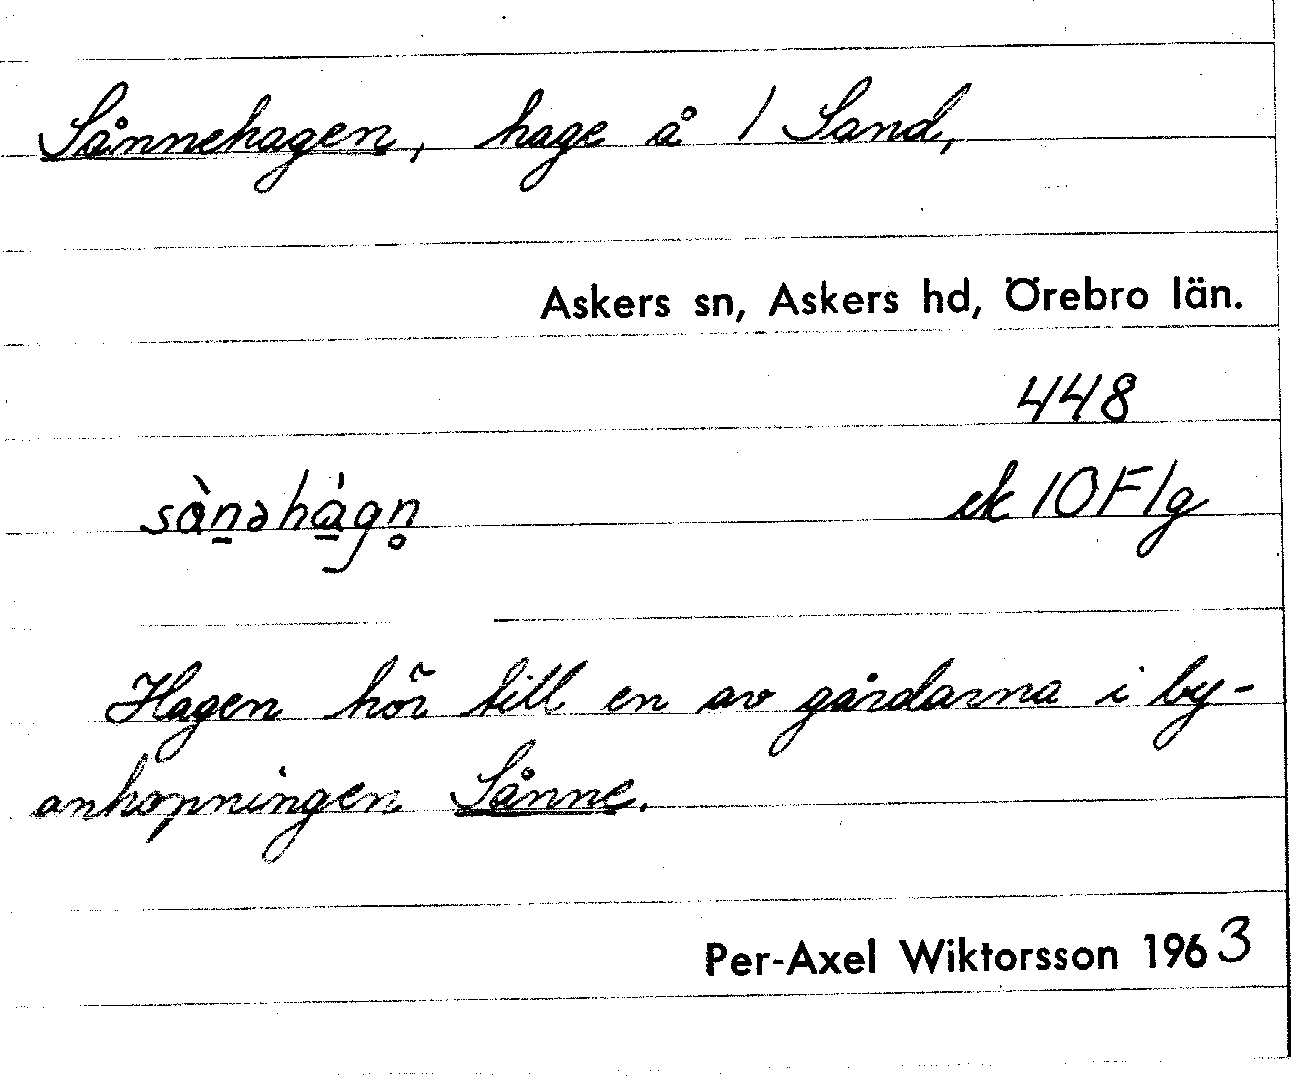 Sånnehagen, hage å 1 Sand,
Askers sn, Askers hd, Örebro län.
448
sàn̠əhá̠gn̥ ek 10F1g
Hagen hör till en av gårdarna i by-
anhopningen Sånne.
Per-Axel Wiktorsson 1963